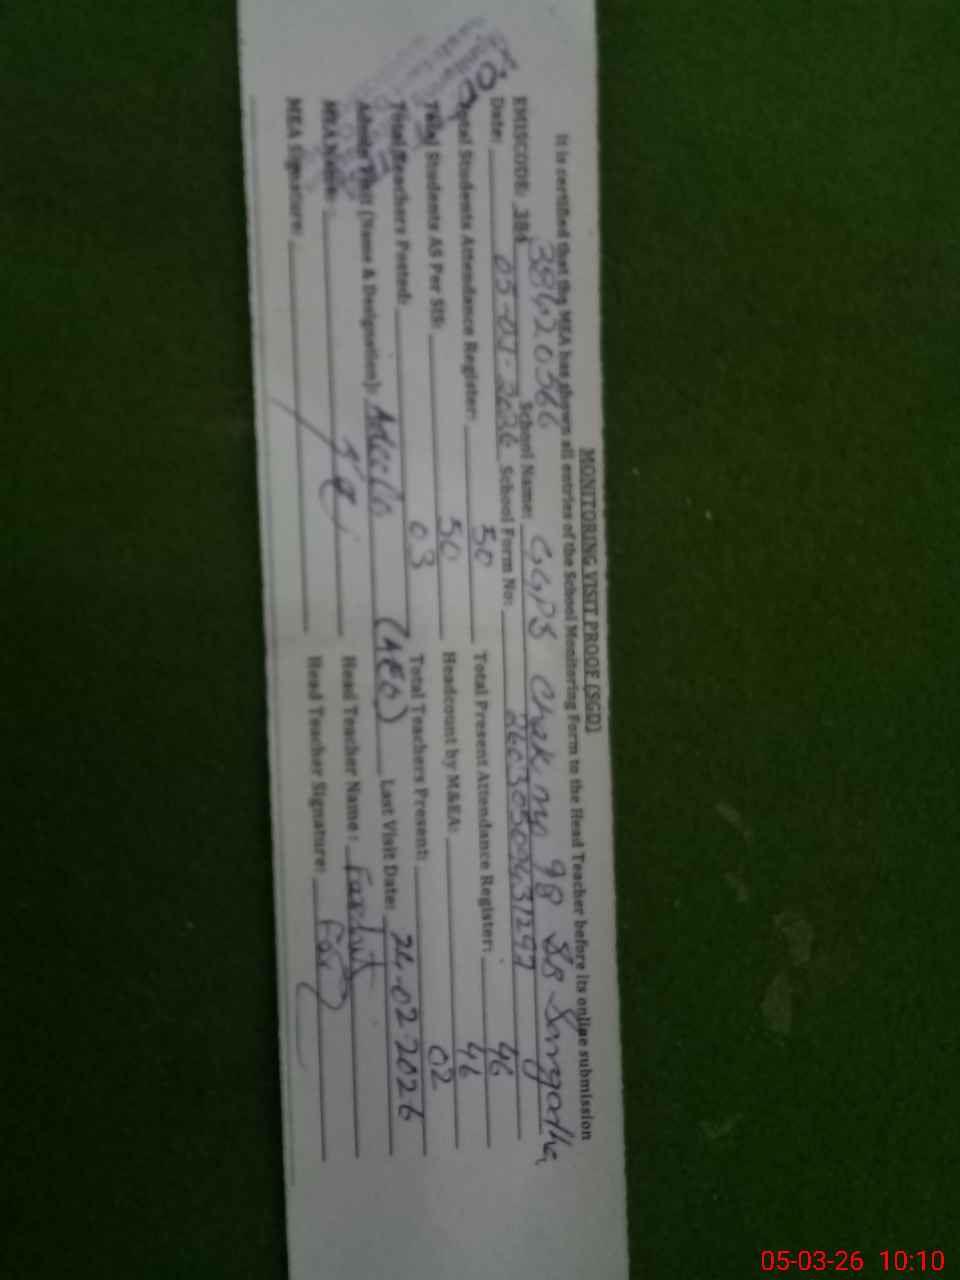 MONITORING VISIT PROOF (SGD)
It is certified that the MEA has shown all entries of the School Monitoring Form to the Head Teacher before its online submission
EMISCODE: 384 38420566 School Name: GGPS Chak no 98 SB Sargodha
Date: 05-03-2026 School Form No: 26030509431297
Total Students Attendance Register: 50 Total Present Attendance Register: 46
Total Students AS Per SIS: 50 Headcount by M&EA: 46
Total Teachers Posted: 03 Total Teachers Present: 02
Admin Visit (Name & Designation): (AEO) Last Visit Date: 24-02-2026
MEA Name: Head Teacher Name: Farhat
MEA Signature: Head Teacher Signature:
05-03-26 10:10